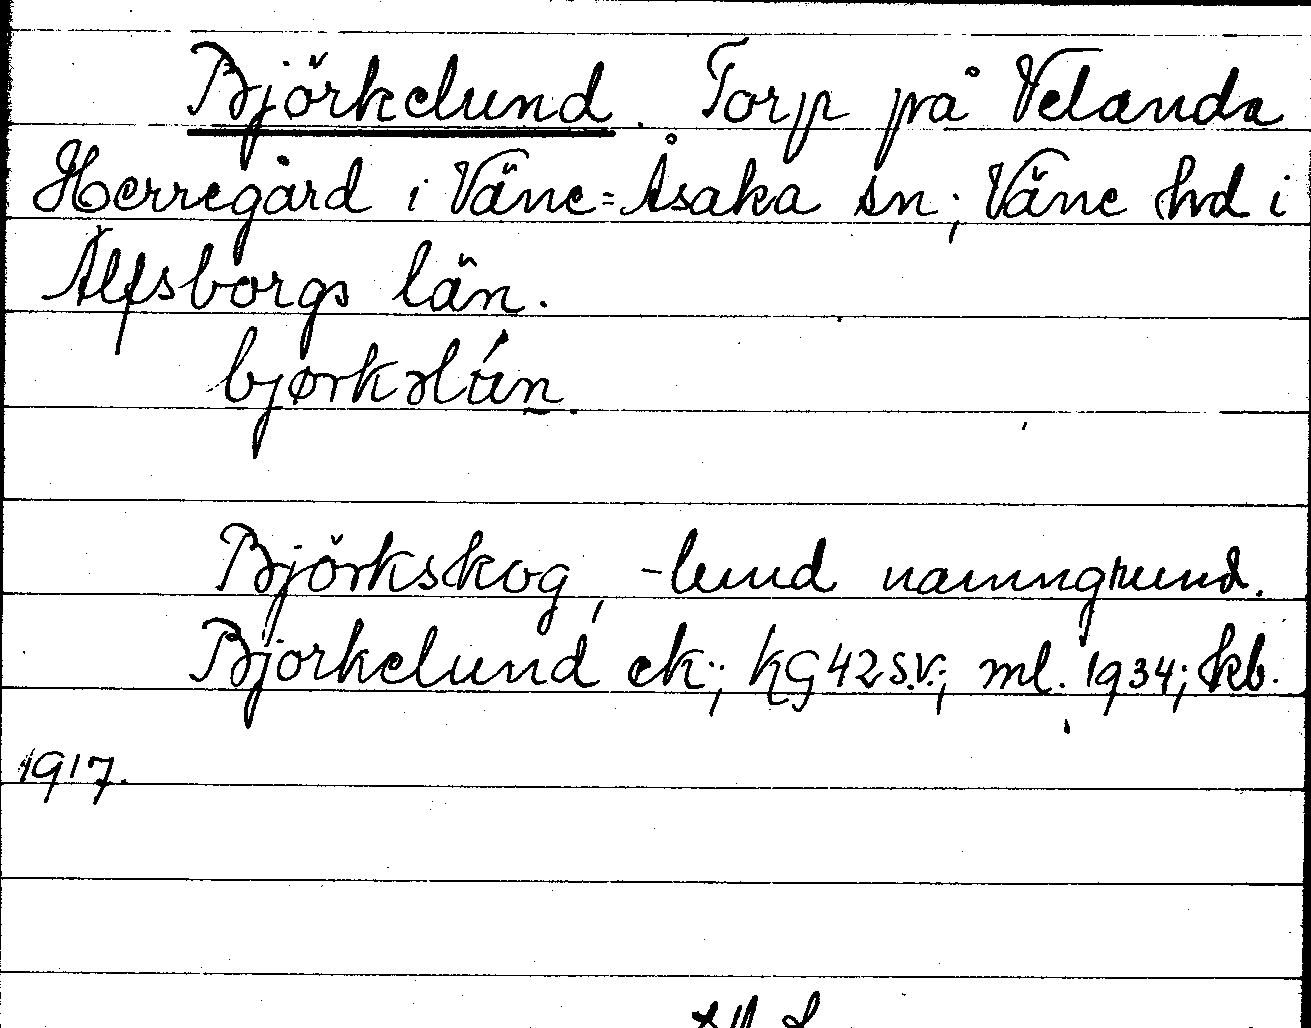 Björkelund. Torp på Velanda
Herregård i Väne=Åsaka sn; Väne hd i
Älfsborgs län.
bjørkəlún.
Björkskog, -lund namngrund.
Björkelund ek; KG42SV; ml. 1934; kb.
1917.